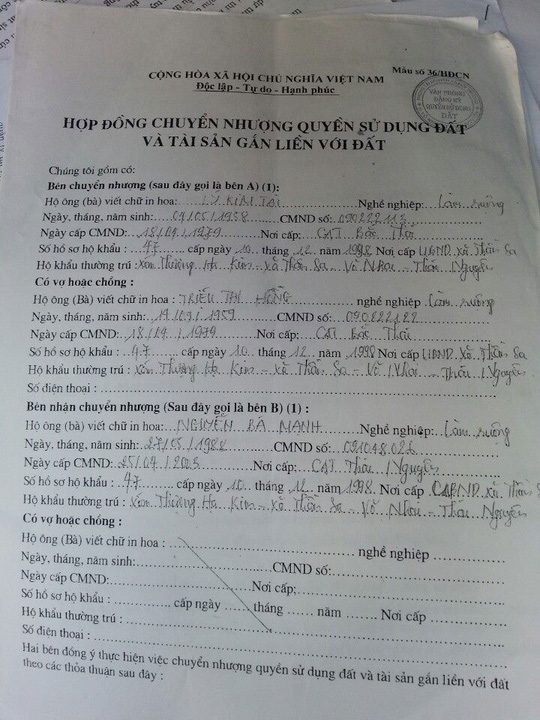 Mẫu số 36/HĐCN
CỘNG HÒA XÃ HỘI CHỦ NGHĨA VIỆT NAM
Độc lập - Tự do - Hạnh phúc
VĂN PHÒNG ĐĂNG KÝ QUYỀN SỬ DỤNG ĐẤT
HỢP ĐỒNG CHUYỂN NHƯỢNG QUYỀN SỬ DỤNG ĐẤT
VÀ TÀI SẢN GẮN LIỀN VỚI ĐẤT
Chúng tôi gồm có:
Bên chuyển nhượng (sau đây gọi là bên A) (1):
Hộ ông (bà) viết chữ in hoa: KIM TÀI Nghề nghiệp: Làm ruộng
Ngày, tháng, năm sinh: 04/05/1958 CMND số: 090222113
Ngày cấp CMND: 18/09/1979 Nơi cấp: CAT Bắc Thái
Số hồ sơ hộ khẩu: 47 cấp ngày 10 tháng 12 năm 1998 Nơi cấp UBND xã Thần Sa
Hộ khẩu thường trú: Xóm Thượng Hạ Kim - xã Thần Sa - Võ Nhai - Thái Nguyên
Có vợ hoặc chồng:
Hộ ông (Bà) viết chữ in hoa: TRIỆU THỊ HỒNG nghề nghiệp Làm ruộng
Ngày, tháng, năm sinh: 1959 CMND số: 090222122
Ngày cấp CMND: 18/09/1979 Nơi cấp; CAT Bắc Thái
Số hồ sơ hộ khẩu: 47 cấp ngày 10 tháng 12 năm 1998 Nơi cấp UBND xã Thần Sa
Hộ khẩu thường trú: xóm Thượng Hạ Kim - xã Thần Sa - Võ Nhai - Thái Nguyên
Số điện thoại:
Bên nhận chuyển nhượng (Sau đây gọi là bên B) (1):
Hộ ông (bà) viết chữ in hoa: NGUYỄN BÁ MẠNH Nghề nghiệp: Làm ruộng
Ngày, tháng, năm sinh: 27/05/1988 CMND số: 091048026
Ngày cấp CMND: 25/04/2005 Nơi cấp: CAT Thái Nguyên
Số hồ sơ hộ khẩu: 47 cấp ngày 10 tháng 12 năm 1998 Nơi cấp xã Thần Sa
Hộ khẩu thường trú: Xóm Thượng Hạ Kim - xã Thần Sa - Võ Nhai - Thái Nguyên
Có vợ hoặc chồng:
Hộ ông (Bà) viết chữ in hoa: nghề nghiệp
Ngày, tháng, năm sinh: CMND số:
Ngày cấp CMND: Nơi cấp;
Số hồ sơ hộ khẩu: cấp ngày tháng năm Nơi cấp
Hộ khẩu thường trú:
Số điện thoại:
Hai bên đồng ý thực hiện việc chuyển nhượng quyền sử dụng đất và tài sản gắn liền với đất
theo các thỏa thuận sau đây: